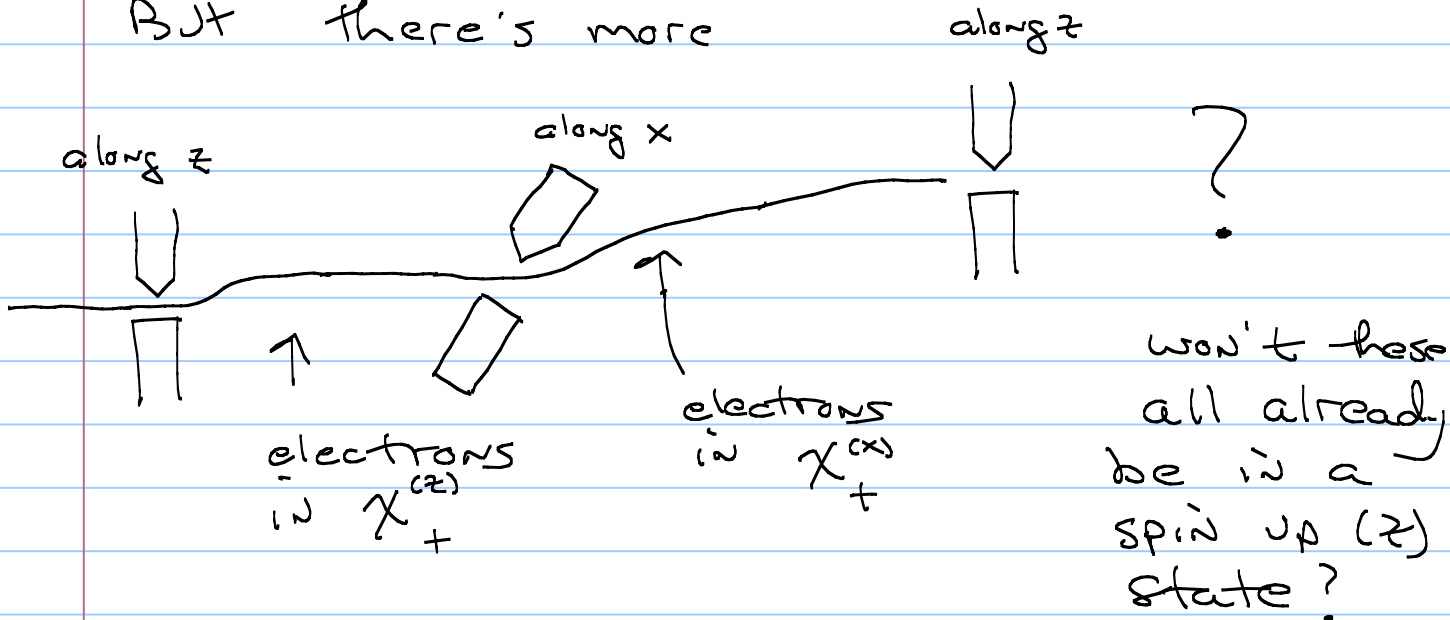 But there's more
along z
along x
along z
?
electrons
in χ₊⁽ᶻ⁾
electrons
in χ₊⁽ˣ⁾
won't these
all already
be in a
spin up (z)
state?